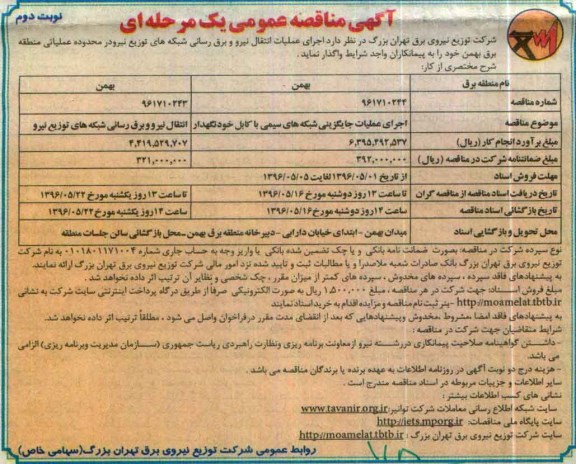 نوبت دوم
آگهی مناقصه عمومی یک مرحله ای
شرکت توزیع نیروی برق تهران بزرگ در نظر دارد اجرای عملیات انتقال نیرو و برق رسانی شبکه های توزیع نیرو در محدوده عملیاتی منطقه
برق بهمن خود را به پیمانکاران واجد شرایط واگذار نماید.
شرح مختصری از کار:
نام منطقه برق بهمن بهمن
شماره مناقصه ۹۶۱۷۱۰۲۴۴ ۹۶۱۷۱۰۲۴۳
موضوع مناقصه اجرای عملیات جایگزینی شبکه های سیمی با کابل خودنگهدار انتقال نیرو و برق رسانی شبکه های توزیع نیرو
مبلغ برآورد انجام کار (ریال) ۶,۳۹۵,۴۹۲,۵۳۷ ۴,۴۱۹,۵۲۹,۷۰۷
مبلغ ضمانتنامه شرکت در مناقصه (ریال) ۳۹۲,۰۰۰,۰۰۰ ۳۲۱,۰۰۰,۰۰۰
مهلت فروش اسناد از تاریخ ۱۳۹۶/۰۵/۰۱ لغایت ۱۳۹۶/۰۵/۰۵
تاریخ دریافت اسناد مناقصه از مناقصه گران تا ساعت ۱۳ روز دوشنبه مورخ ۱۳۹۶/۰۵/۱۶ تا ساعت ۱۳ روز یکشنبه مورخ ۱۳۹۶/۰۵/۲۲
تاریخ بازگشائی اسناد مناقصه ساعت ۱۴ روز دوشنبه مورخ ۱۳۹۶/۰۵/۱۶ ساعت ۱۴ روز یکشنبه مورخ ۱۳۹۶/۰۵/۲۲
محل تحویل و بازگشائی اسناد میدان بهمن - ابتدای خیابان دارایی - دبیرخانه منطقه برق بهمن - محل بازگشائی سالن جلسات منطقه
نوع سپرده شرکت در مناقصه: بصورت ضمانت نامه بانکی و یا چک تضمین شده بانکی یا واریز وجه به حساب جاری شماره ۰۱۰۱۸۰۱۱۷۱۰۰۴ به نام شرکت
توزیع نیروی برق تهران بزرگ بانک صادرات شعبه ملاصدرا و یا مطالبات ثبت و تایید شده نزد امور مالی شرکت توزیع نیروی برق تهران بزرگ ارائه نمایند.
به پیشنهادهای فاقد سپرده، سپرده های مخدوش، سپرده های کمتر از میزان مقرر، چک شخصی و نظایر آن ترتیب اثر داده نخواهد شد.
مبلغ فروش اسناد: جهت شرکت در هر مناقصه، مبلغ ۱,۵۰۰,۰۰۰ ریال به صورت الکترونیکی صرفا از طریق درگاه پرداخت اینترنتی سایت شرکت به نشانی
http://moamelat.tbtb.ir - پنر ثبت نام مناقصه و مزایده اقدام به خرید اسناد نمایند
به پیشنهادهای فاقد امضا، مشروط، مخدوش و پیشنهادهایی که بعد از انقضای مدت مقرر در فراخوان واصل می شود، مطلقاً ترتیب اثر داده نخواهد شد.
شرایط متقاضیان جهت شرکت در مناقصه:
- داشتن گواهینامه صلاحیت پیمانکاری در رشته نیرو از معاونت برنامه ریزی و نظارت راهبردی ریاست جمهوری (سازمان مدیریت و برنامه ریزی) الزامی
می باشد.
- هزینه درج دو نوبت آگهی در روزنامه اطلاعات به عهده برنده یا برندگان مناقصه می باشد.
سایر اطلاعات و جزییات مربوطه در اسناد مناقصه مندرج است.
نشانی های کسب اطلاعات بیشتر:
سایت شبکه اطلاع رسانی معاملات شرکت توانیر: www.tavanir.org.ir
سایت پایگاه ملی مناقصات: http://iets.mporg.ir
سایت شرکت توزیع نیروی برق تهران بزرگ: http://moamelat.tbtb.ir
روابط عمومی شرکت توزیع نیروی برق تهران بزرگ (سهامی خاص)